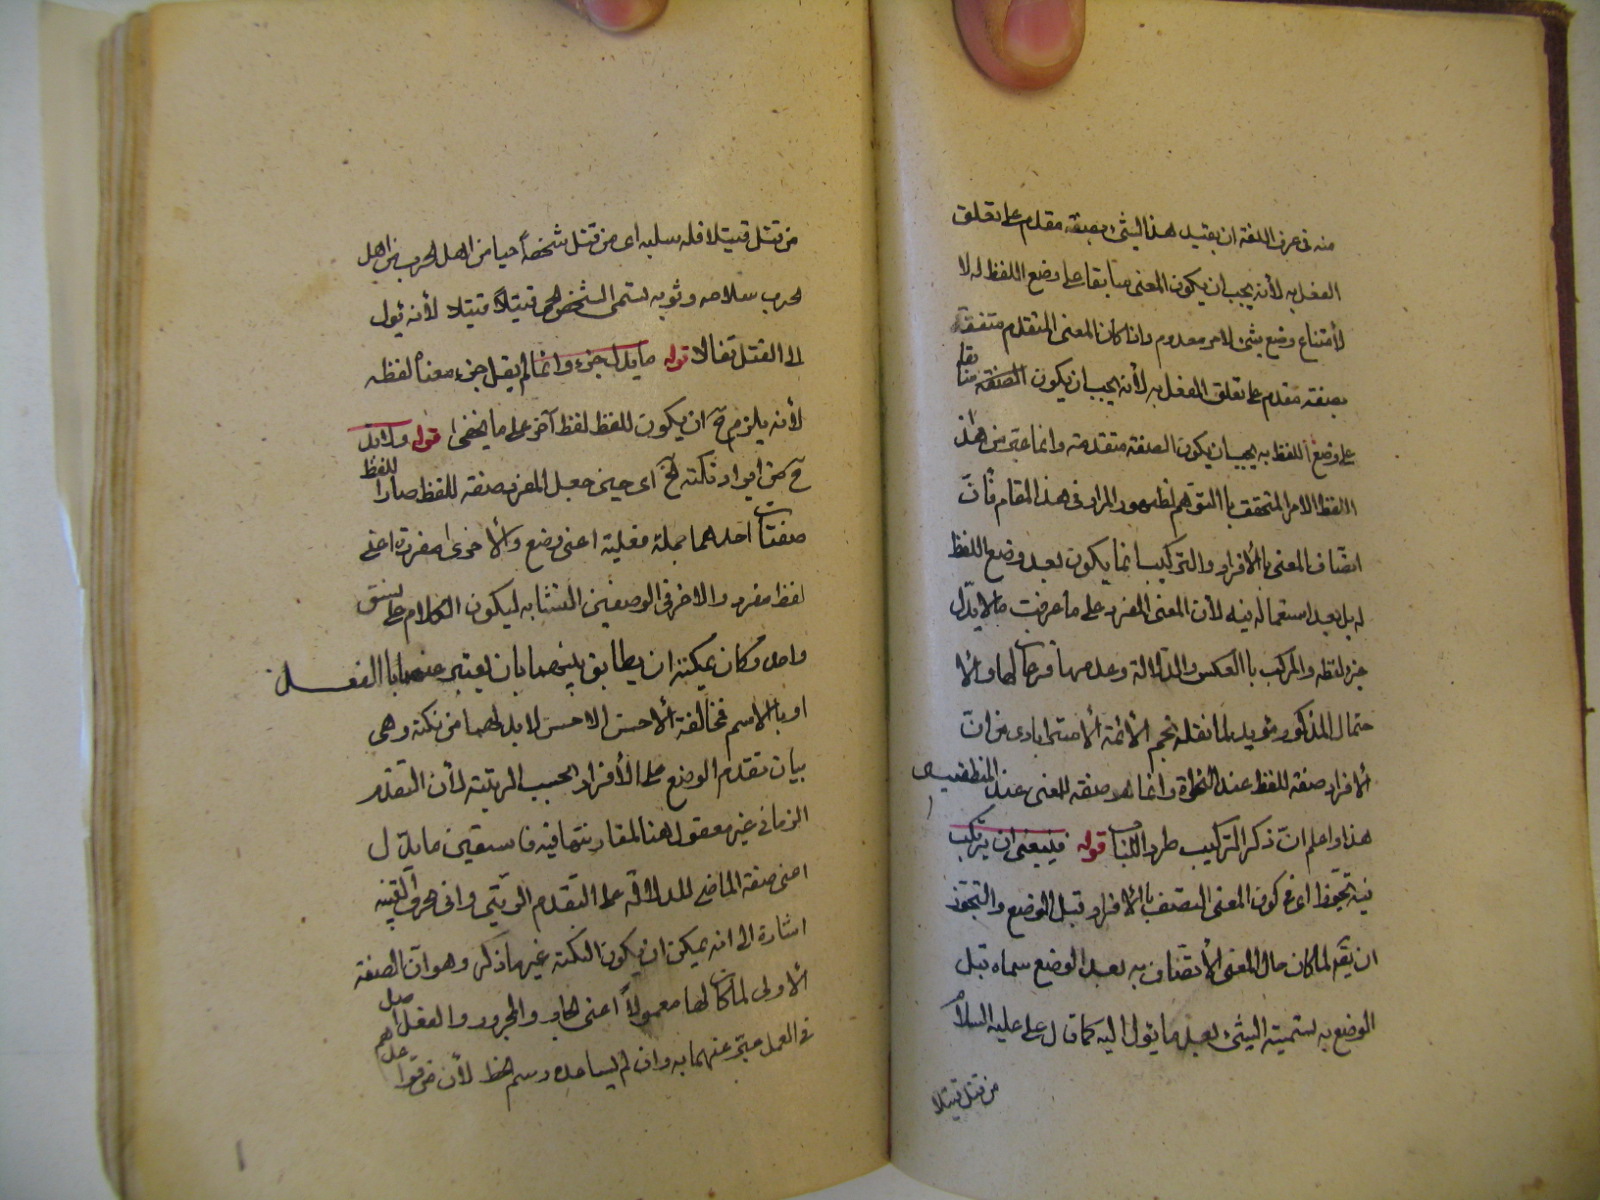 منه فى عرف اللغة ان يقيد هذا الشئ بصفة مقدم على تعلق
الفعل به لأنه يجب ان يكون المعنى سابقا على وضع اللفظ له لا
لأمتناع وضع شئ لامر معدوم واذا كان المعنى المتقدم متصفة
بصفة مقدم على تعلق الفعل به لأنه يجب ان يكون الصفة
على وضع اللفظ به يجب ان يكون الصفة متقدمة وانما عبر عن هذا
اللفظ الامر المتحقق با التوهم لظهور المراد فى هذا المقام فأنّ
اتصاف المعنى با الأفراد والتركيب انما يكون بعد وضع اللفظ
له بل بعد استعماله فيه لأن المعنى المفرد على ما عرفت ما لا يدّل
جزء لفظه والمركب با العكس والدلالة وعدمها فرعان لها والا
حتمال المذكور مؤيد لما نقله نجم الأئمة الأستر ابادى من انّ
ألافراد صفة للفظ عند النحاة وانما هو صفة للمعنى عند المنطقيين
هذا واعلم انّ ذكر التركيب طرد اللباب قوله فينبغى ان يرتكب
فيه تجوّز اى فى كون المعنى المتصف با الأفراد قبل الوضع والتجوز
ان يقّه لما كان مال المعنى الأتصاف به بعد الوضع سماه قبل
الوضع به تسمية الشئ بعد ما يؤل اليه كما قال على عليه السلام
من قتل قتيلا
من قتل قتيلا فله سلبه اى من قتل شخصاً حيا من اهل الحرب من اهل
لحرب سلاحه وثوبه يسمى الشخص الحى قتيلا لأنه يؤل
الى القتل تفألا قوله ما يدل جزء وانما لم يقل جزء معناه لفظه
لأنه يلزم ح ان يكون للفظ لفظ آخر على ما يخفى قوله ولابد
ح من ايراد نكتة الخ اى حين جعل المفرد صفة للفظ صار للفظ
صفتان احدهما جملة فعلية اعنى وضع والأخرى مفردة اعنى
لفظ مفرد والاخر فى الوصفين التشابه ليكون الكلام على نسق
واحد وكان يمكنه ان يطابق بينهما بان يعتبر عنهما با الفعل
او با الاسم فمخالفة الأحسن الاحسن لابد لهما من نكتة وهى
بيان تقدم الوضع على الأفراد بحسب الرتبة لأن التقدم
الزمانى غير معقول هنا لمقارنتها فيه فاستعين ما يدّل
اعنى صفة الماضى للدلالة على التقدم الرتبّى وانى بحرف
اشارة الى انه يمكن ان يكون النكتة غيرها ذكر وهو انّ الصفة
الأولى لما كان لها معمولاً اعنى الجار والمجرور والفعل اصل
فى العمل عبّر عنهما به وان لم يساعده رسم الخط لأن